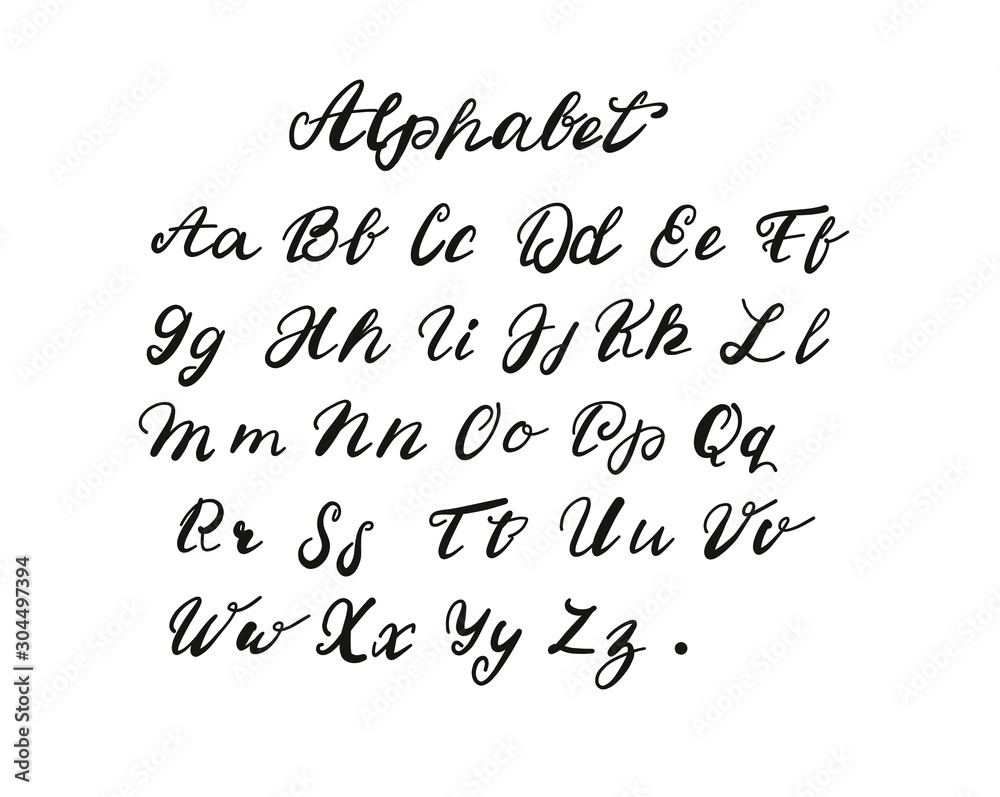 Alphabet
Aa Bb Cc Dd Ee Ff
Gg Hh Ii Jj Kk Ll
Mm Nn Oo Pp Qq
Rr Ss Tt Uu Vv
Ww Xx Yy Zz .
Adobe Stock | #304497394